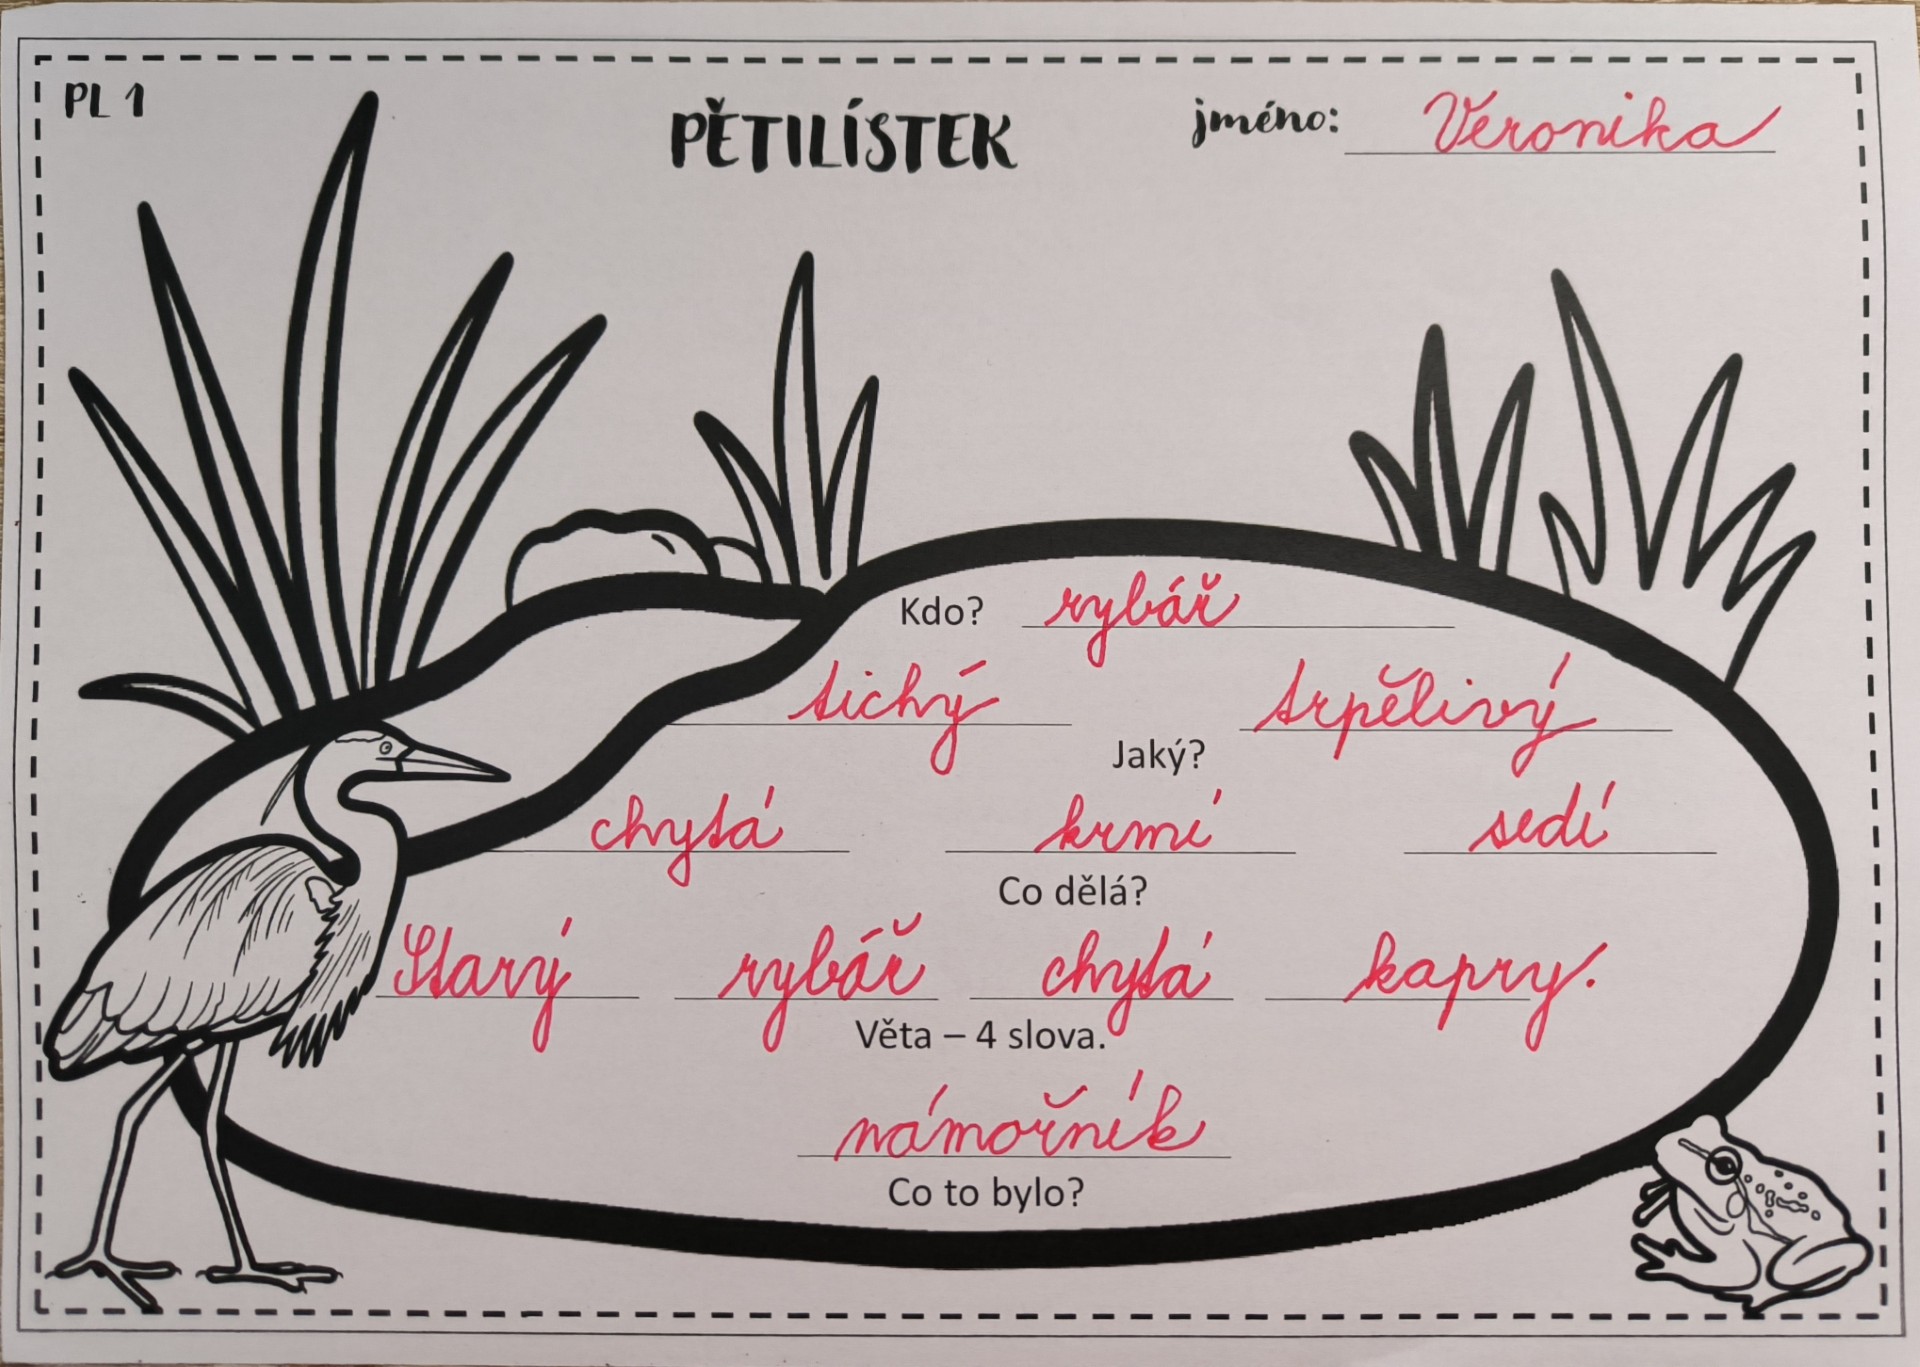 PL 1
PĚTILÍSTEK
jméno: Veronika
Kdo? rybář
tichý trpělivý
Jaký?
chytá krmí sedí
Co dělá?
Starý rybář chytá kapry.
Věta – 4 slova.
námořník
Co to bylo?